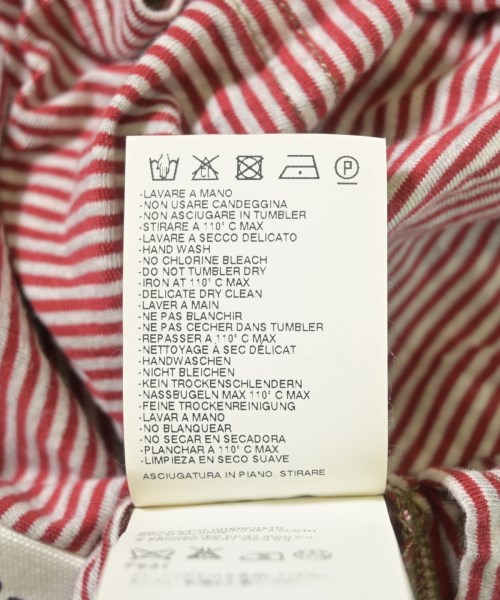 CL
P
-LAVARE A MANO
-NON USARE CANDEGGINA
-NON ASCIUGARE IN TUMBLER
-STIRARE A 110° C MAX
-LAVARE A SECCO DELICATO
-HAND WASH
-NO CHLORINE BLEACH
-DO NOT TUMBLER DRY
-IRON AT 110° C MAX
-DELICATE DRY CLEAN
-LAVER A MAIN
-NE PAS BLANCHIR
-NE PAS CECHER DANS TUMBLER
-REPASSER A 110° C MAX
-NETTOYAGE À SEC DÉLICAT
-HANDWASCHEN
-NICHT BLEICHEN
-KEIN TROCKENSCHLENDERN
-NASSBUGELN MAX 110° C MAX
-FEINE TROCKENREINIGUNG
-LAVAR A MANO
-NO BLANQUEAR
-NO SECAR EN SECADORA
-PLANCHAR A 110° C MAX
-LIMPIEZA EN SECO SUAVE
ASCIUGATURA IN PIANO. STIRARE